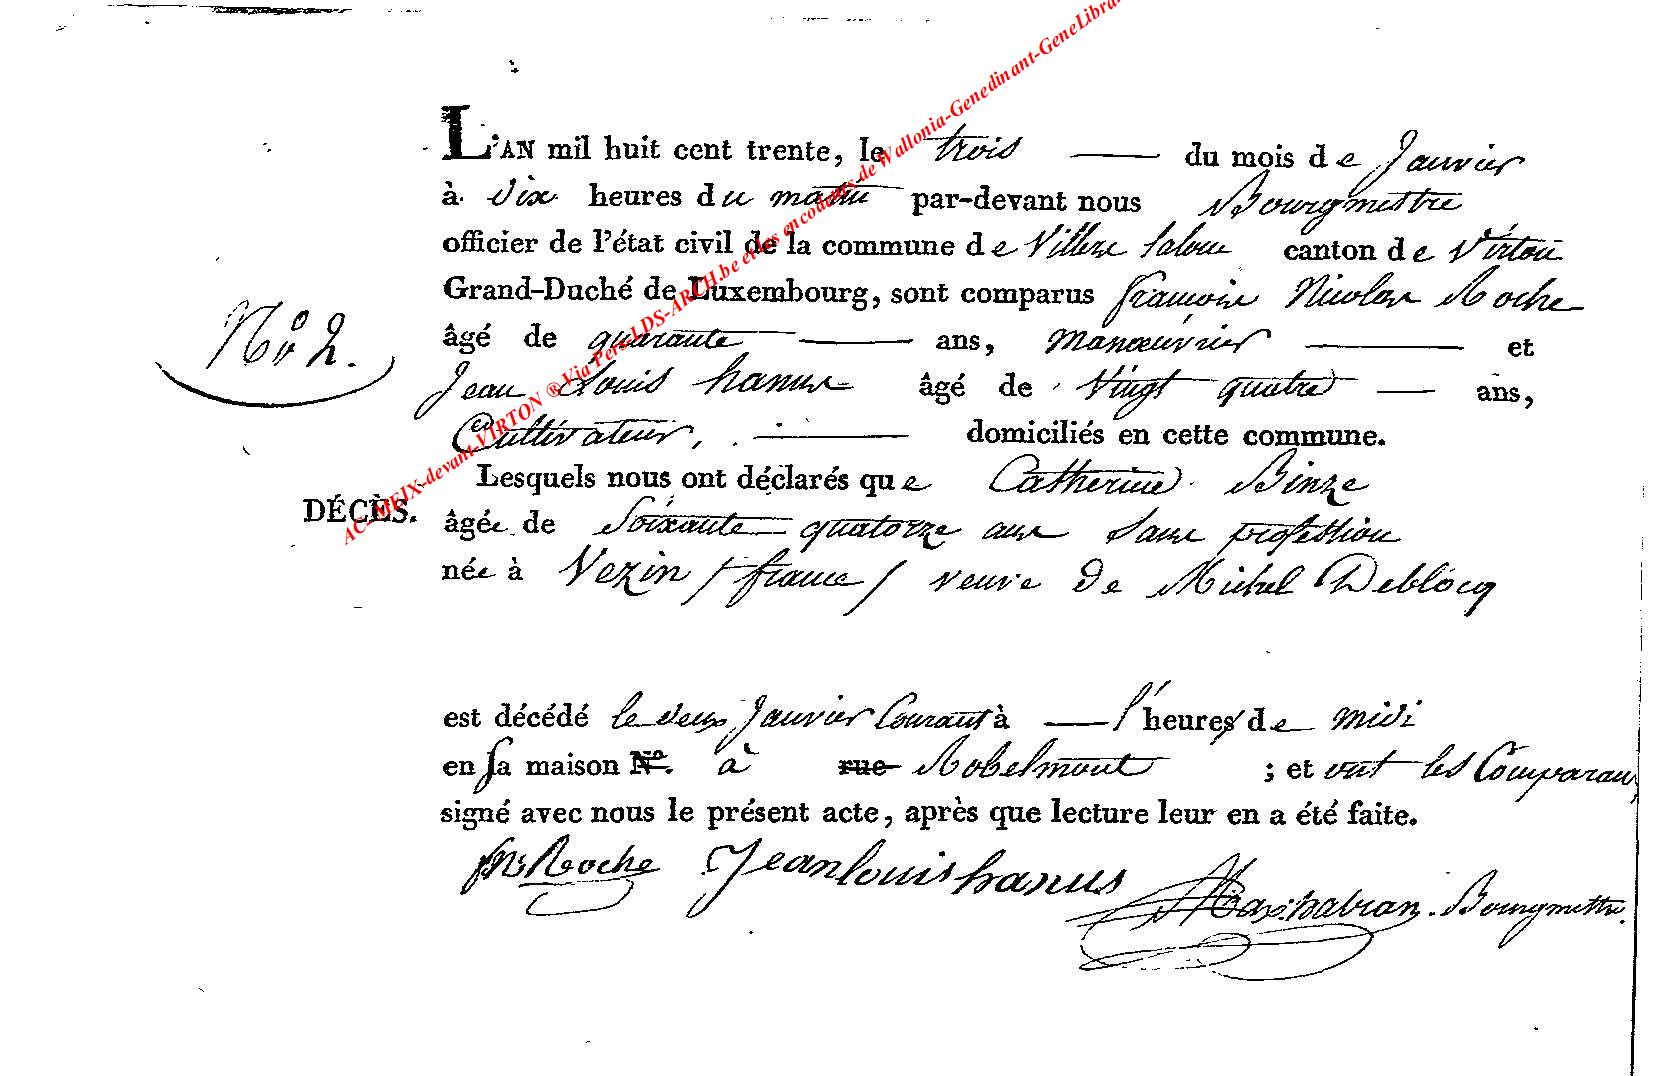 L'AN mil huit cent trente, le trois du mois de Janvier
à dix heures du matin par-devant nous Bourgmestre
officier de l'état civil de la commune de Villers la loue canton de Virton
Grand-Duché de Luxembourg, sont comparus françois Nicolas Roche
No 2.
âgé de quarante ans, manœuvrier et
Jean Louis hanus âgé de vingt quatre ans,
Cultivateur, domiciliés en cette commune.
Lesquels nous ont déclarés que Catherine Binze
DÉCÈS.
âgée de Soixante quatorze ans Sans profession
née à Vezin / france / veuve de Michel Deblocq
est décédé le deux Janvier Courant à l'heure de midi
en sa maison N°. à rue Robelmont ; et ont les Comparans
signé avec nous le présent acte, après que lecture leur en a été faite.
fN Roche Jean louis hanus Bourgmettre.
AC-MEIX-devant-VIRTON ® Via Pers LDS-ARCH.be et les encodeurs de Wallonia-Genedinant-GeneLibra